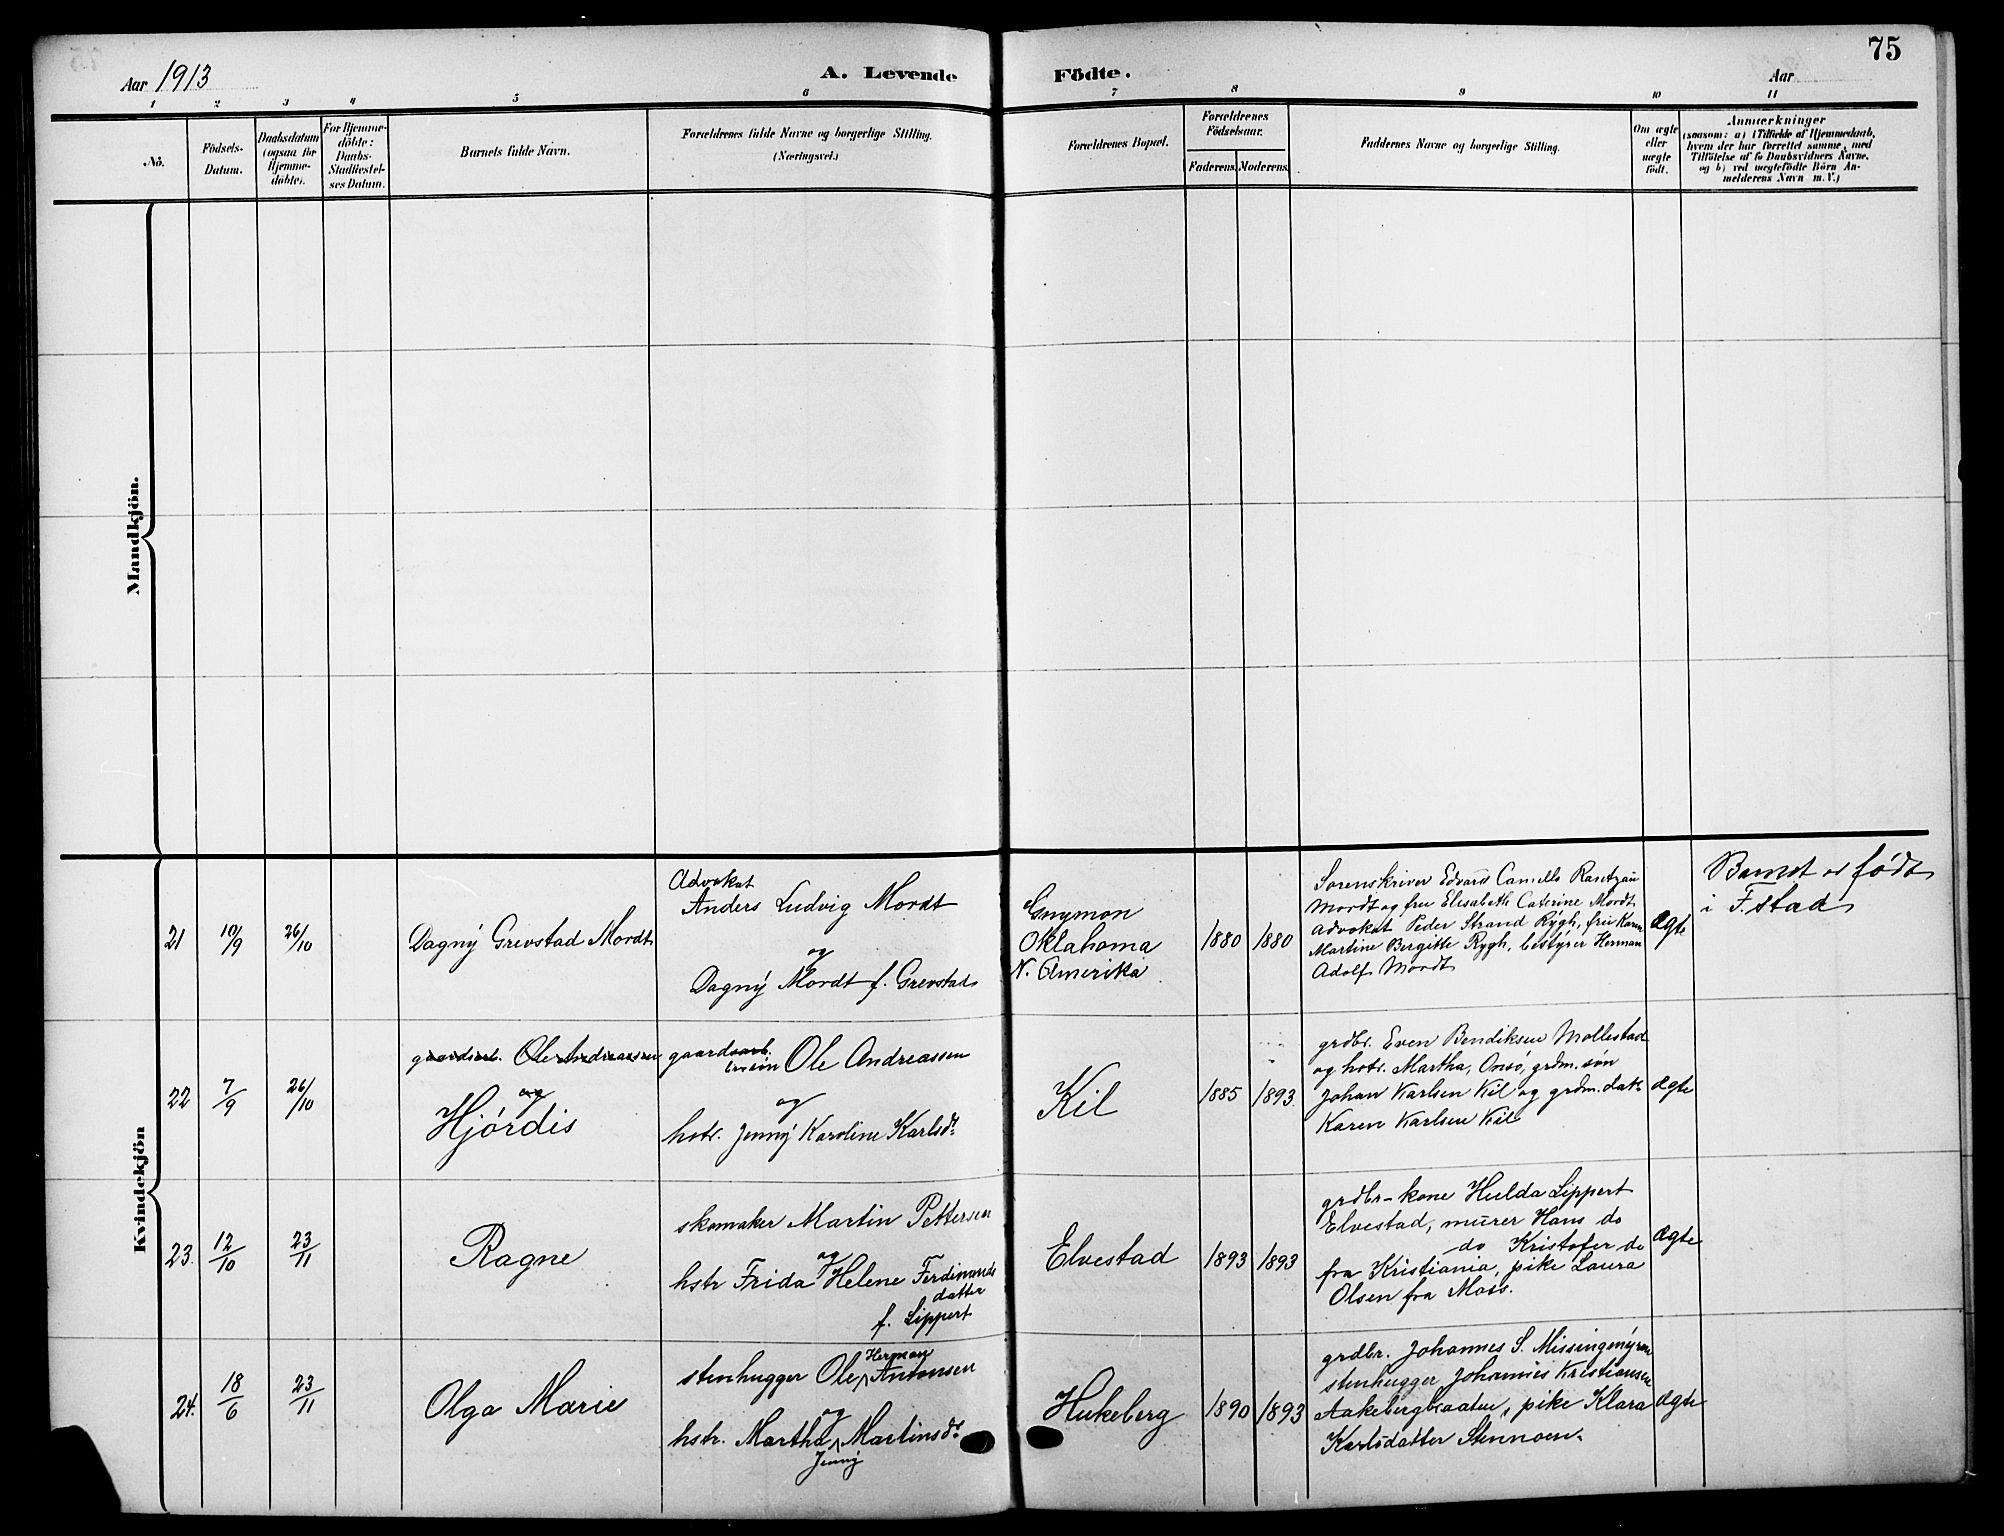 75
Aar 1913
A. Levende
Födte.
Aar
1 2 3 4 5 6 7 8 9 10 11
No.
Födsels-
Datum.
Daabsdatum
(ogsaa for
Hjemme-
döbte).
For Hjemme-
döbte:
Daabs-
Stadfæstel-
ses Datum.
Barnets fulde Navn.
Forældrenes fulde Navne og borgerlige Stilling.
(Næringsvei.)
Forældrenes Bopæl.
Forældrenes
Födselsaar.
Faderens. Moderens.
Faddernes Navne og borgerlige Stilling.
Om ægte
eller
uægte
födt.
Anmærkninger
(saasom: a) i Tilfælde af Hjemmedaab,
hvem der har forrettet samme, med
Tilföielse af to Daabsvidners Navne,
og b) ved uægtefödte Börn An-
melderens Navn m. V.)
Mandkjön.
Kvindekjön
21
10/9
26/10
Dagny Grevstad Mordt
Advokat
Anders Ludvig Mordt
og
Dagny Mordt f. Grevstad
Guymon
Oklahoma
N. Amerika
1880
1880
Sorenskriver Edvard Camillo Rantzau
Mordt og fru Elisabeth Caterine Mordt.
advokat Peder Strand Rygh, fru Karen
Martine Bergitte Rygh, bestyrer Herman
Adolf Mordt
ægte
Barnet er født
i F.stad
22
7/9
26/10
gaardsarb. Ole Andreassen
og
Hjørdis
gaardsarb. Ole Andreassen
og
hstr. Jenny Karoline Karlsdt.
Kil
1885
1893.
grdbr. Even Bendiksen Mollestad
og hstr. Martha, Onsø, grdm. søn
Johan Karlsen Kil og grdm. datt.
Karen Karlsen Kil
ægte
23.
12/10
23/11
Ragne
skomaker Martin Pettersen
og
hstr Frida Helene Ferdinands
datter
f. Lippert
Elvestad
1893
1893
grdbr-kone Hulda Lippert
Elvestad, murer Hans do
do Kristofer do
fra Kristiania, pike Laura
Olsen fra Moss.
ægte
24.
18/6
23/11
Olga Marie
Herman
stenhugger Ole Antonsen
og
hstr. Martha Martinsdt.
Jenny
Hukeberg
1890
1893
grdbr. Johannes S. Missingmyren
stenhugger Johannes Kristiansen
Aakebergbraaten, pike Klara
Karlsdatter Stenmoen.
ægte